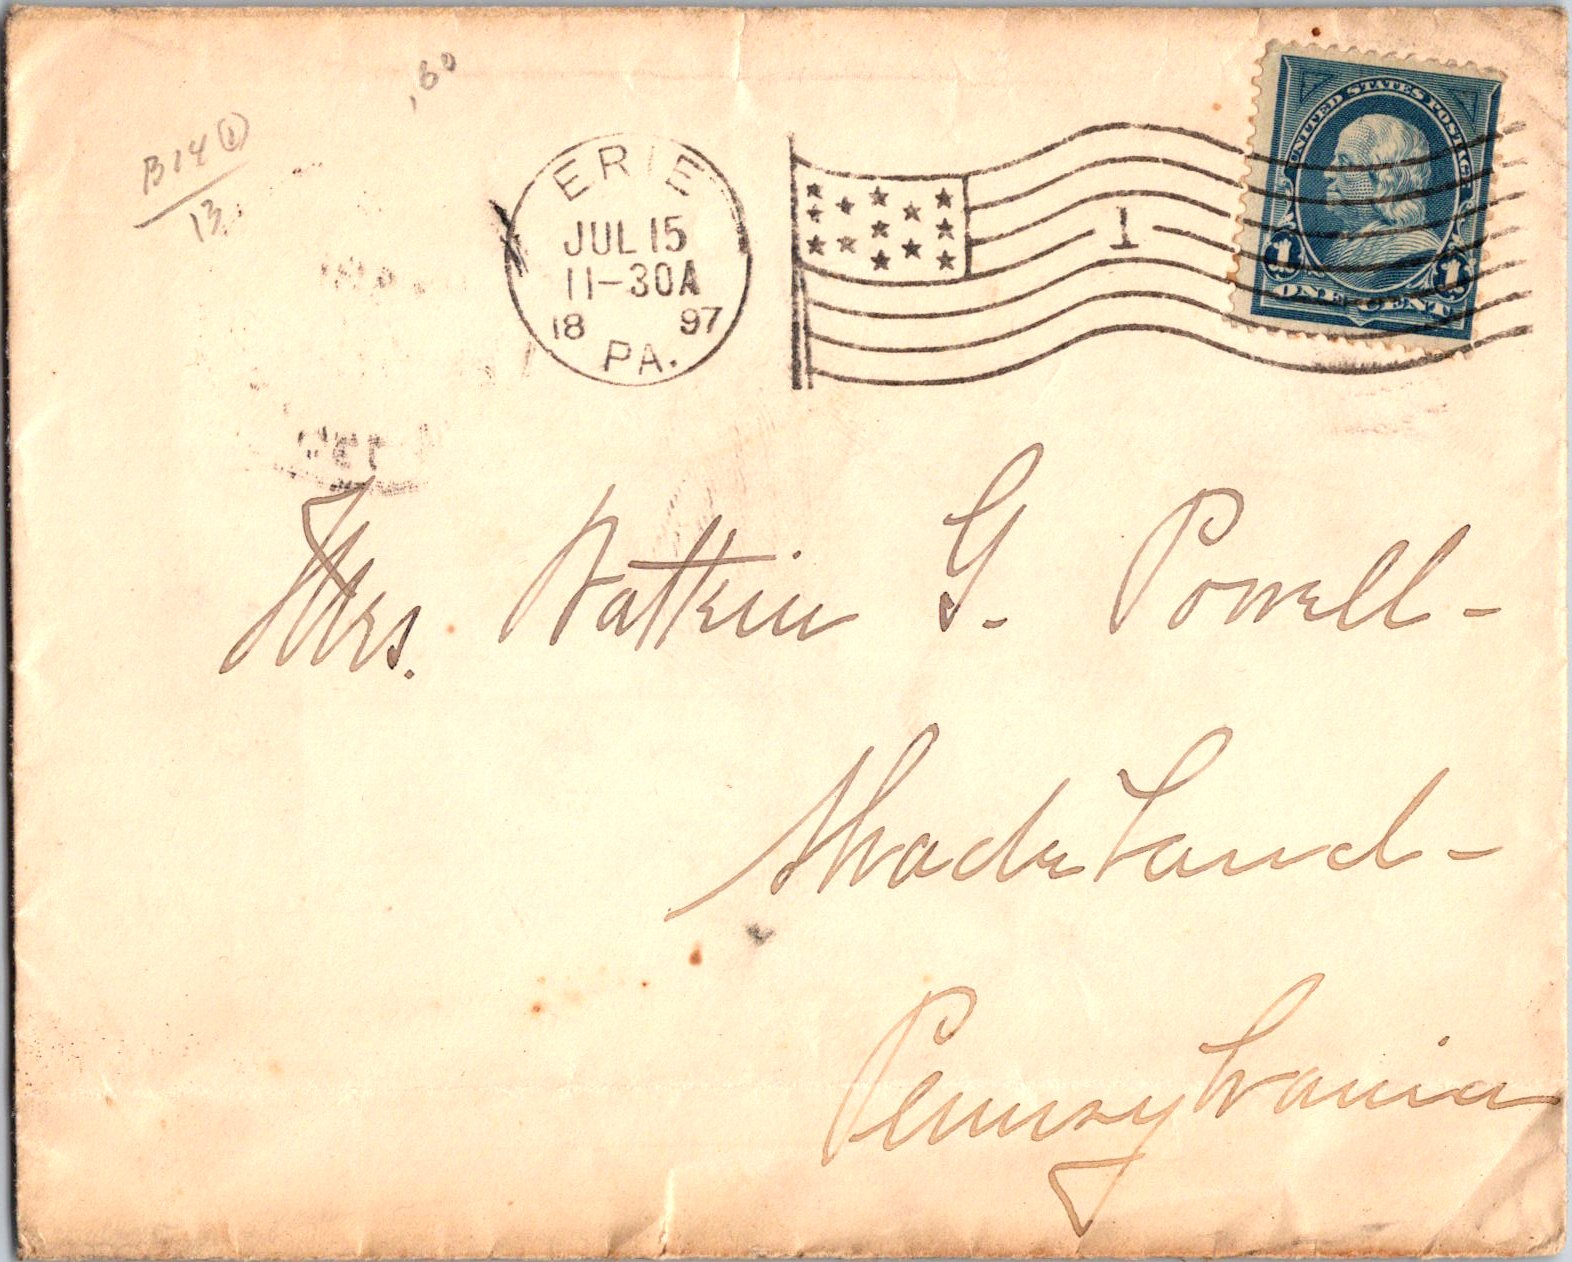 .60
B14 ①
13
ERIE
JUL 15
11-30A
18 97
PA.
1
UNITED STATES POSTAGE
1 1
ONE CENT
Mrs. Watkin G. Powell -
Shadeland -
Pennsylvania